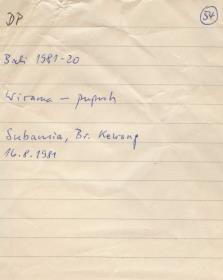 DP
54
Bali 1981-20
Wirama – pupuh
Subamia, Br. Kewang
16.8.1981